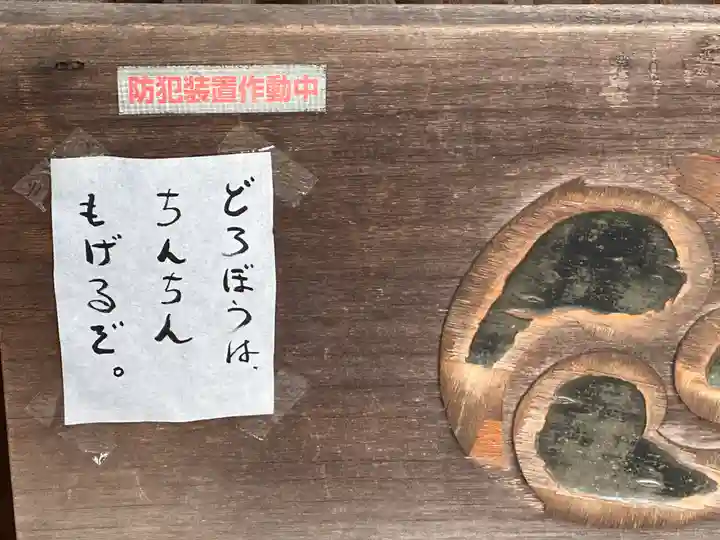 防犯装置作動中
どろぼうは、
ちんちん
もげるぞ。